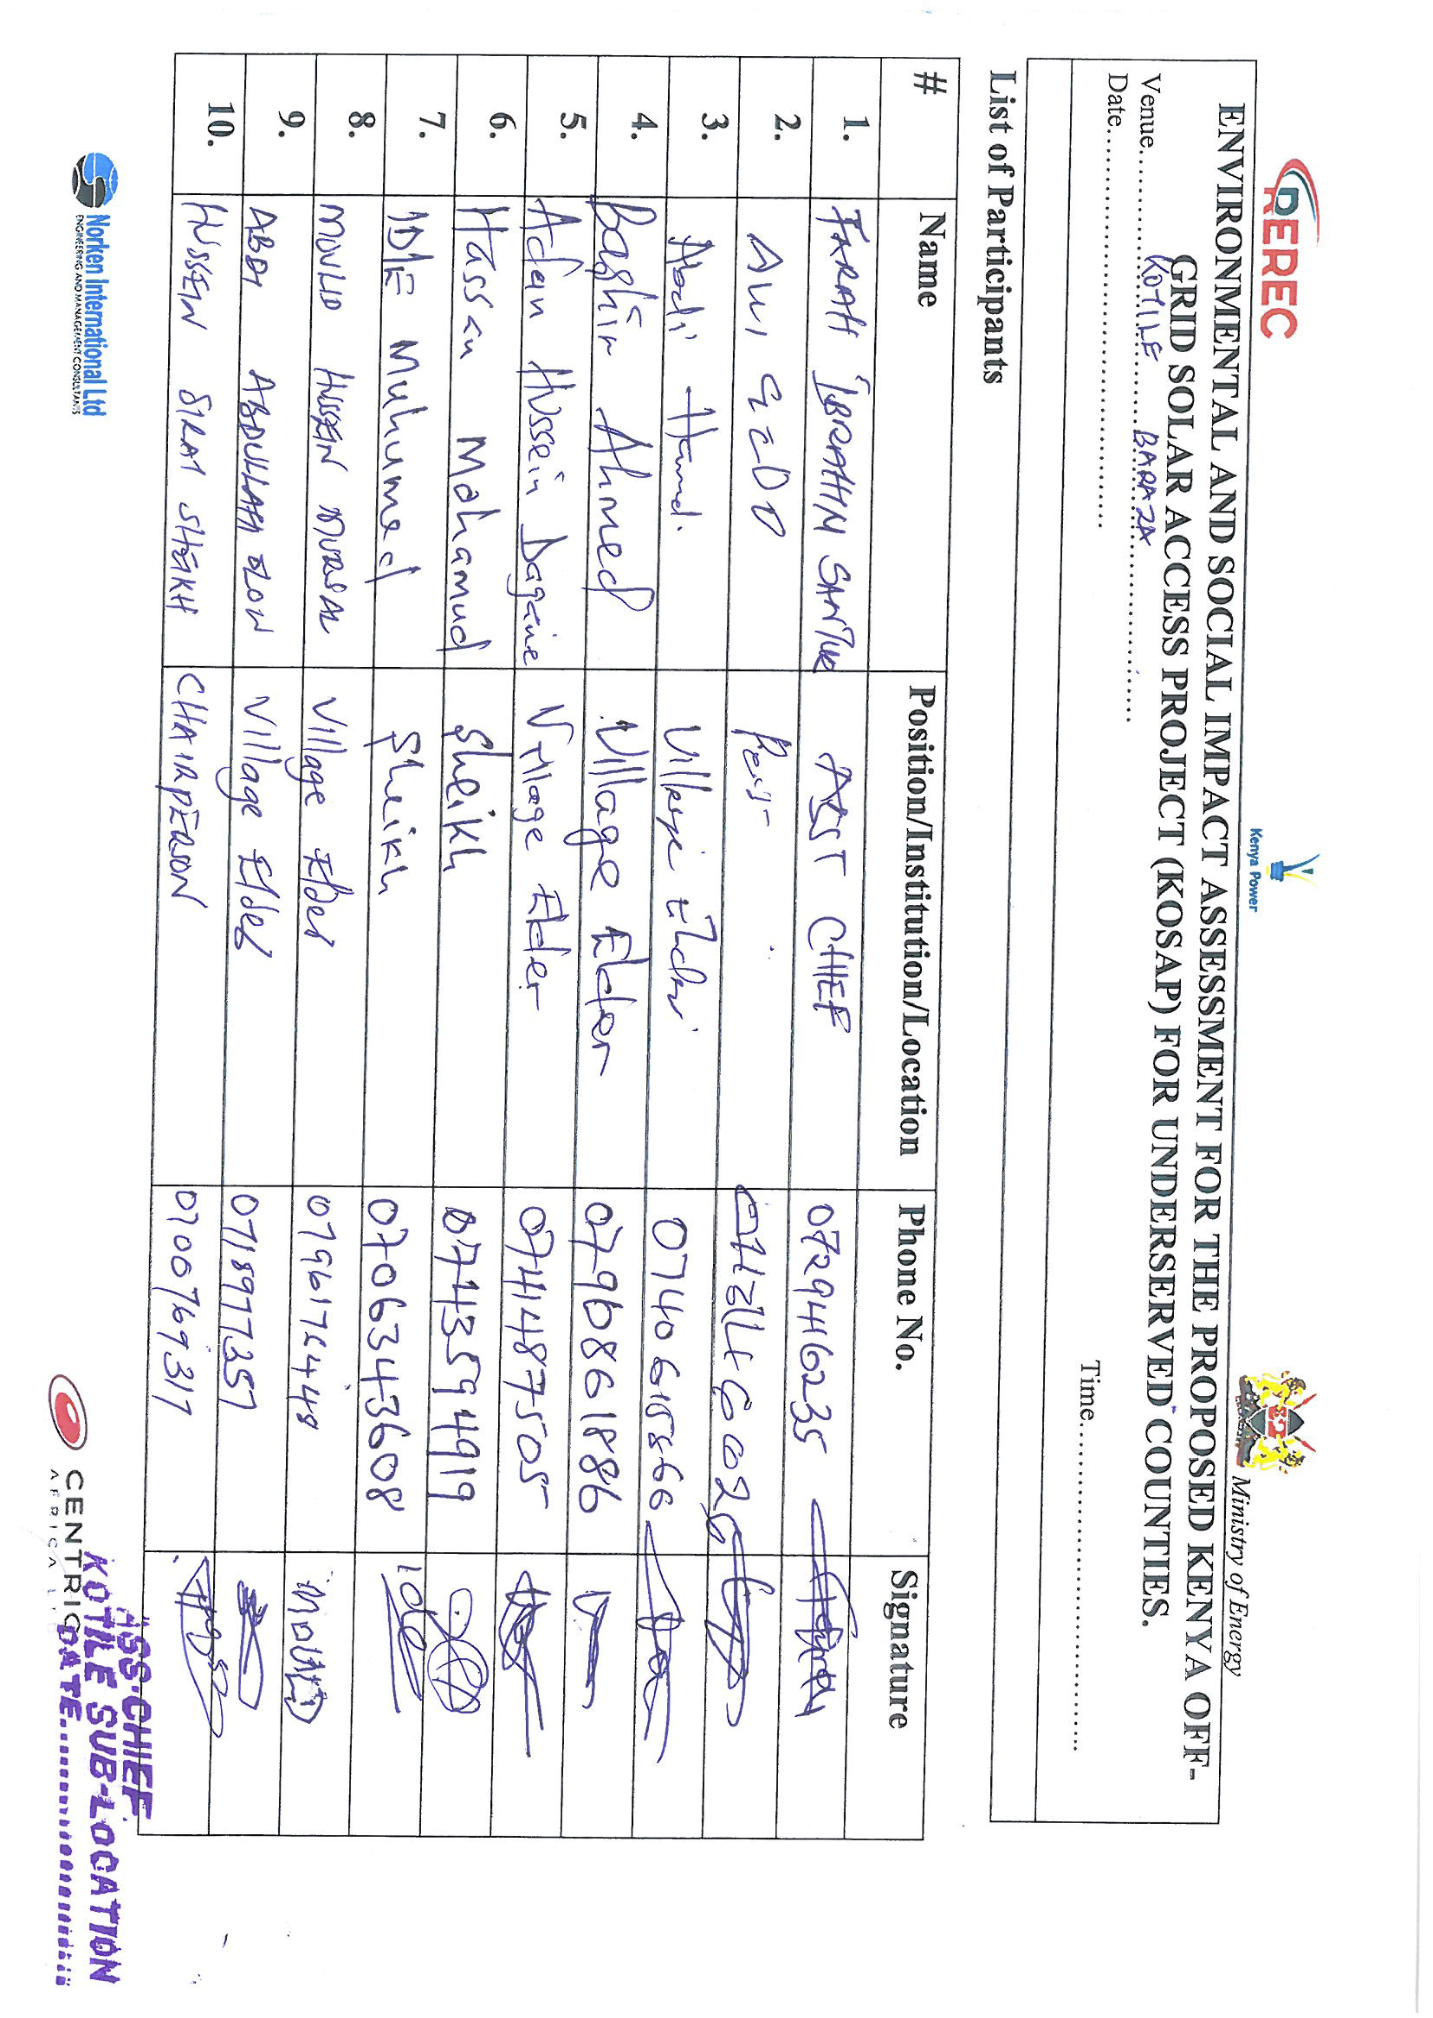 REREC
Kenya Power
Ministry of Energy
ENVIRONMENTAL AND SOCIAL IMPACT ASSESSMENT FOR THE PROPOSED KENYA OFF-
GRID SOLAR ACCESS PROJECT (KOSAP) FOR UNDERSERVED COUNTIES.
Venue KOTILE BARAZA
Date Time
List of Participants
# Name Position/Institution/Location Phone No. Signature
1. FARAH IBRAHIM ASST CHIEF 0729416235
2.
3. Abdi Village Elder 0740615866
4. Bashir Ahmed Village Elder 0790861886
5. Adan Hussein Dagane Village Elder 0741487505
6. Hassan Mohamud Sheikh 0743594919
7. IDLE Muhumed Sheikh 0706343608
8. MOULID HUSSEIN MURSAL Village Elder
9. ABDI ABDULLAHI Village Elder 0718977357
10. HUSSEIN SIRAT SHEIKH CHAIRPERSON 0700769317
Norken International Ltd
ENGINEERING AND MANAGEMENT CONSULTANTS
CENTRIC
AFRICA
ASS CHIEF
KOTILE SUB-LOCATION
DATE